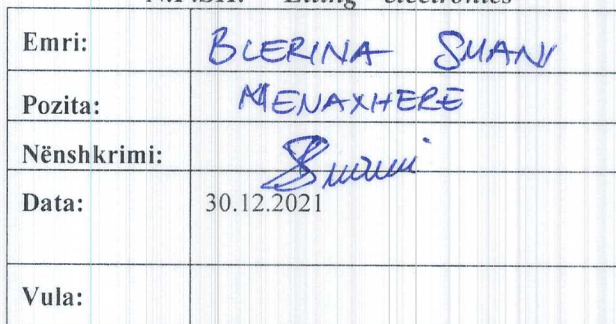 Emri: BLERINA SMANI
Pozita: MENAXHERE
Nënshkrimi:
Data: 30.12.2021
Vula: